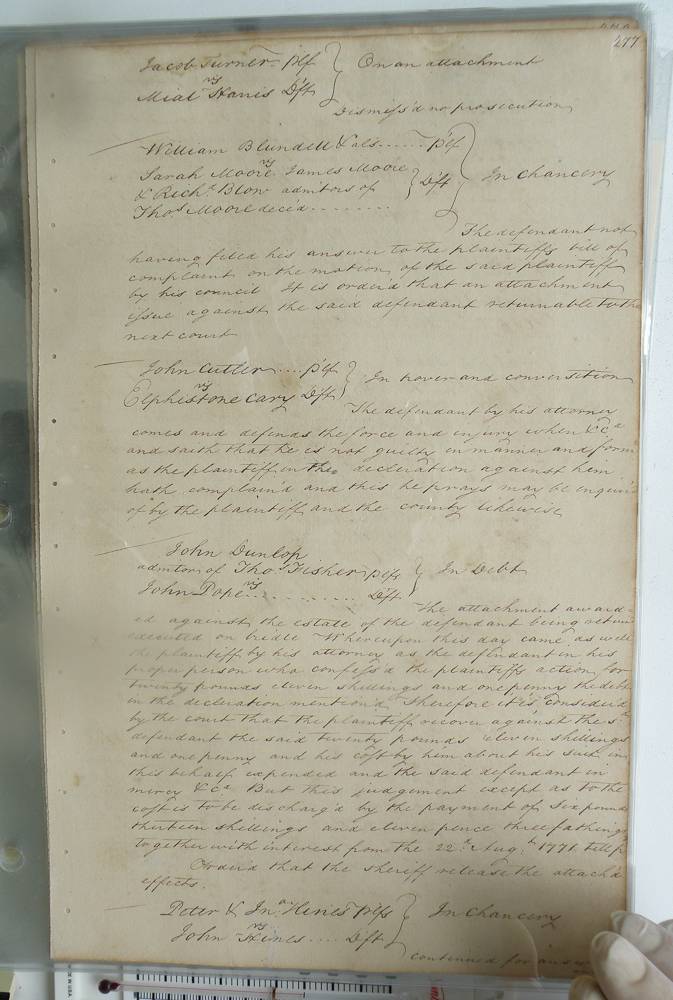 277
Jacob Turner - Plf } On an attachment
vs
Mial Harris Dft
Dismiss'd no prosecution
William Blundell & als ...... Plf } In Chancery
vs
Sarah Moore James Moore
& Richd. Blow admitors of } Dft
Thos. Moore decd .........
The defendant not
having filed his answer to the plaintiffs bill of
complaint on the motion of the said plaintiff
by his council It is orderd that an attachment
issue against the said defendant returnable to the
next court
John Cutler .... Plf } In trover and conversition
vs
Elphistone Cary Dft
The defendant by his attorney
comes and defends the force and injury when &ca
and saith that he is not guilty in manner and form
as the plaintiff in the decleration against him
hath complain'd and this he prays may be enquir'd
of by the plaintiff and the county likewise
John Dunlop
admtor of Thos. Fisher Plf } In Debt
vs
John Pope ........... Dft
The attachment award-
ed against the estate of the defendant being return
executed on bridle Whereupon this day came as well
the plaintiff by his attorney as the defendant in his
proper person who confess'd the plaintiffs action for
twenty pounds eleven shillings and one penny the debt
in the decleration mention'd Therefore it is consider'd
by the court that the plaintiff recover against the sd.
defendant the said twenty pounds eleven shillings
and one penny and his cost by him about his suit in
this behalf expended and the said defendant in
mercy &ca But this judgement except as to the
cost is to be discharg'd by the payment of six pounds
thirteen shillings and eleven pence three fathings
together with interest from the 22d. Augt. 1771 till p
Orderd that the sheriff release the attach'd
effects.
Peter & Jno. Hines Plfs } In Chancery
vs
John Hines .... Dft
continued for answ